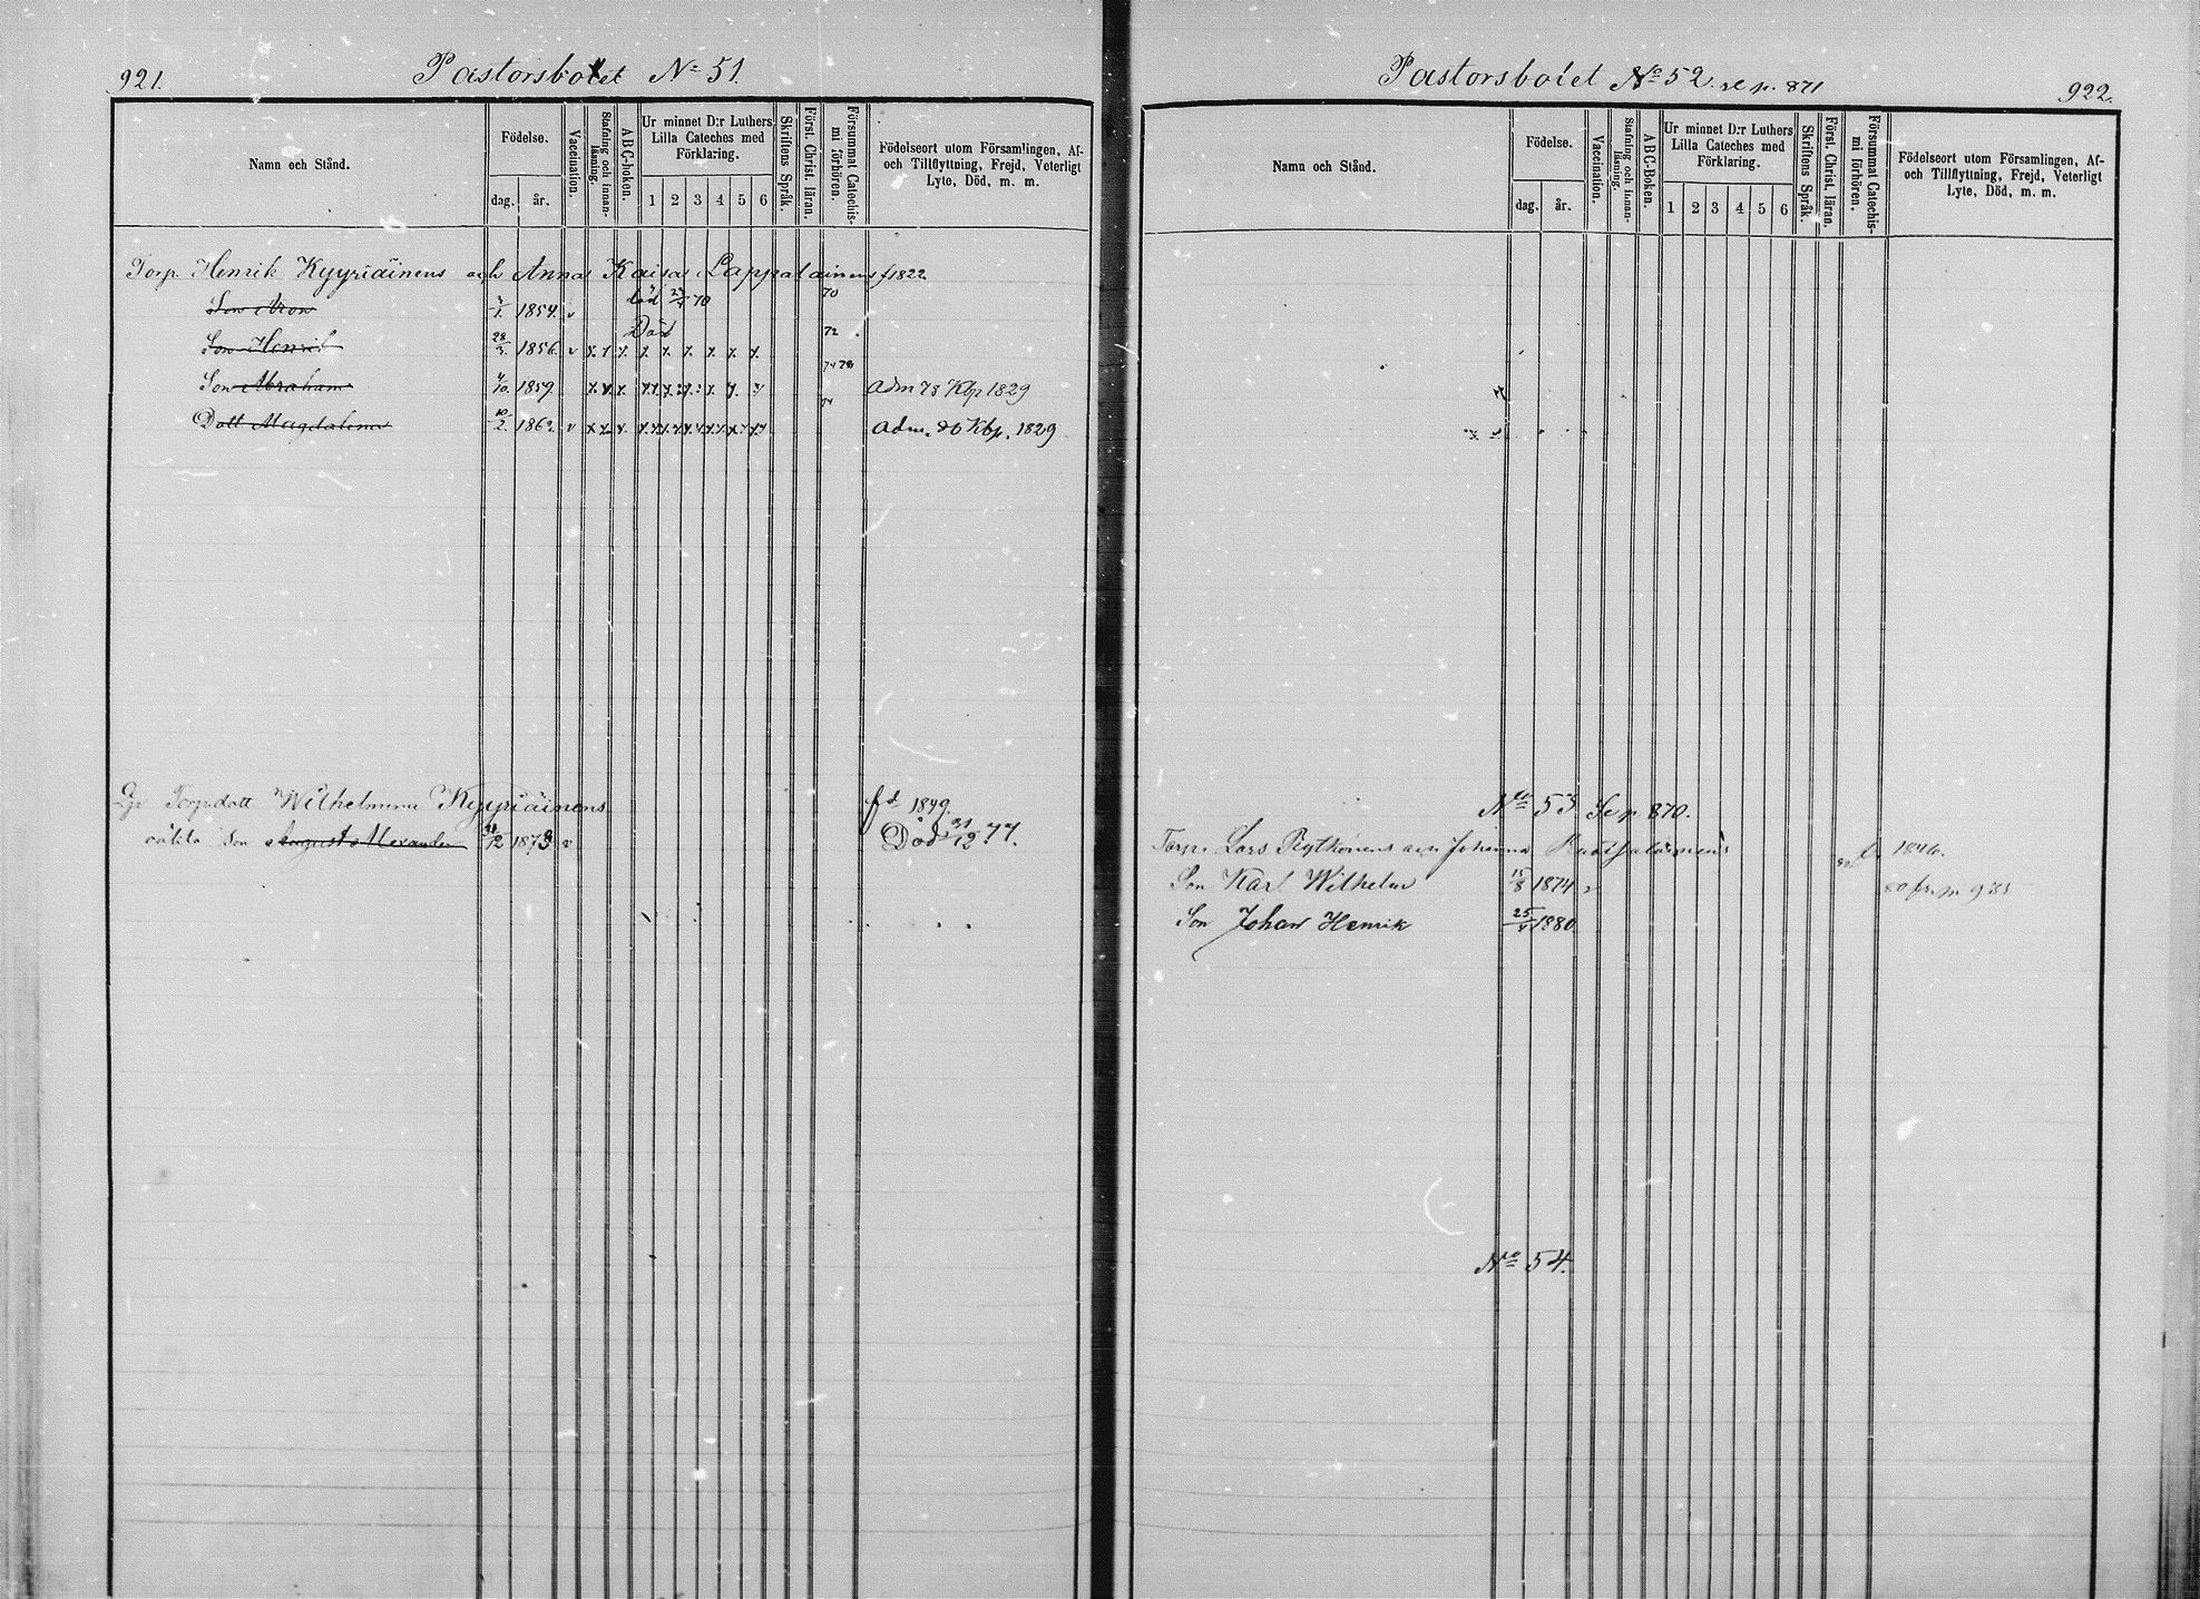 921.
Pastorsbolet No 51.
Namn och Stånd.
Födelse.
dag.
år.
Vaccination.
Stafning och innanläsning.
ABC-boken.
Ur minnet D:r Luthers Lilla Cateches med Förklaring.
1 2 3 4 5 6
Skriftens Språk.
Först. Christ. läran.
Försummat Catechismi förhören.
Födelseort utom Församlingen, Af- och Tillflyttning, Frejd, Veterligt Lyte, Död, m. m.
Torp. Henrik Kyyriäinens och Anna Kaisa Lappalainens f 1822
Son Aron 1854. v död 70 70
Son Henrik 28/3 1856. v x x x x x x x x x Död 72
Son Abraham 4/10 1859. 74 adm 78 Kbp 1829
Dott Magdalena 10/2 1862. v 74 adm. 80 Kbp. 1829
Torpdott Wilhelmina Kyyriäinens fd 1849.
oäkta Son August Alexander 31/12 1873 v Död 31/12 77.
Pastorsbolet No 52. se p. 871
922.
Namn och Stånd.
Födelse.
dag.
år.
Vaccination.
Stafning och innanläsning.
ABC-Boken.
Ur minnet D:r Luthers Lilla Cateches med Förklaring.
1 2 3 4 5 6
Skriftens Språk.
Först. Christ. läran.
Försummat Catechismi förhören.
Födelseort utom Församlingen, Af- och Tillflyttning, Frejd, Veterligt Lyte, Död, m. m.
No 53 Se p 870.
Torp. Lars Pytkönens och Johanna f. 1846.
Son Karl Wilhelm 15/8 1874 v
Son Johan Henrik 25/4 1880
No 54.